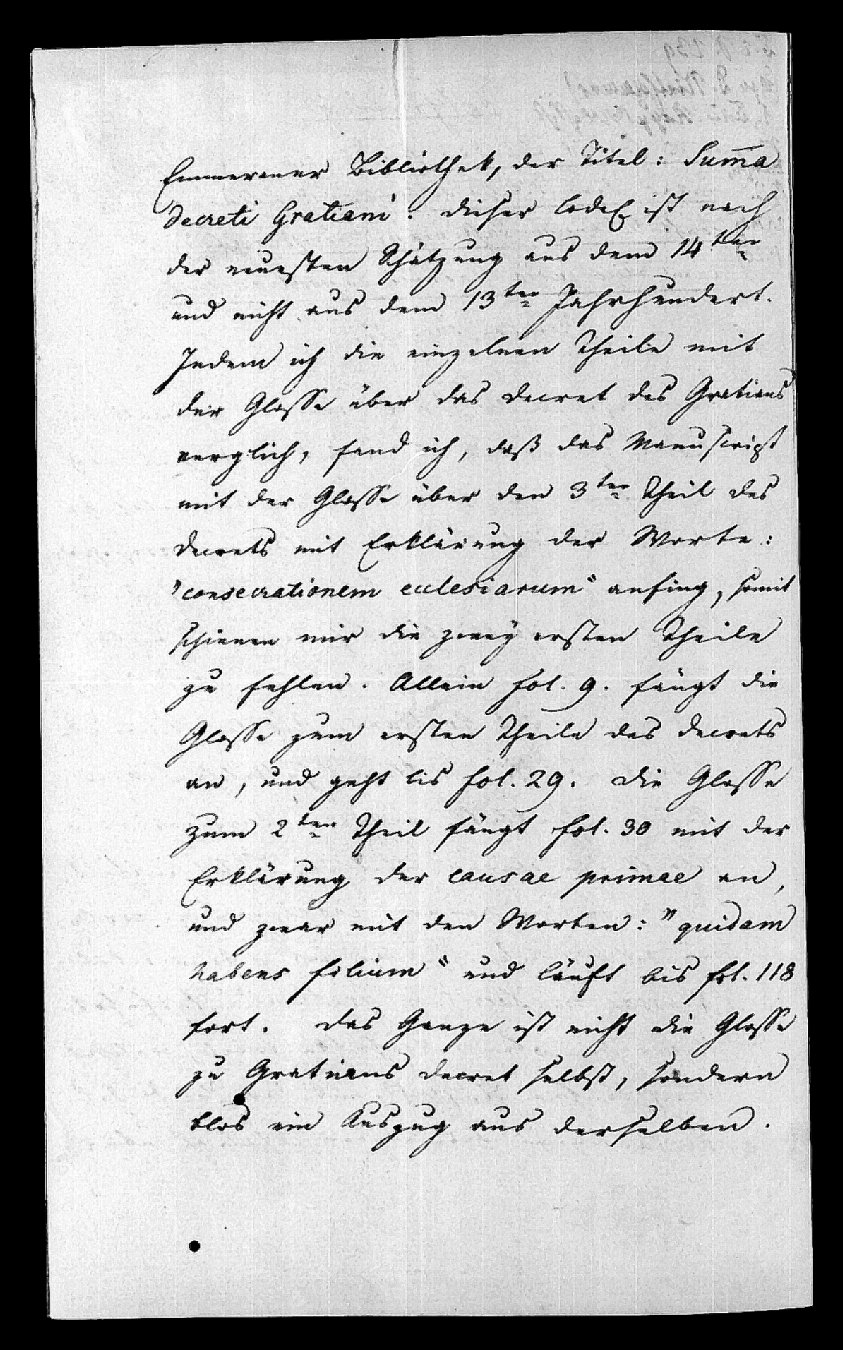 Emmeramer Bibliothek, der Titel: Sum̄a
decreti Gratiani. dieser Codex ist nach
der neuesten Schätzung aus dem 14ten
und nicht aus dem 13ten Jahrhundert.
Indem ich die einzelnen Theile mit
der Glosse über das Decret des Gratians
verglich, fand ich, daß das Manuscript
mit der Glosse über den 3ten Theil des
Decrets mit Erklärung der Worte:
"consecrationem ecclesiarum" anfing, somit
schienen mir die zwey ersten Theile
zu fehlen. Allein fol. 9. fängt die
Glosse zum ersten Theile des Decrets
an, und geht bis fol. 29. die Glosse
zum 2ten Theil fängt fol. 30 mit der
Erklärung der causae primae an,
und zwar mit den Worten: "quidam
habens filium" und läuft bis fol. 118
fort. Das Ganze ist nicht die Glosse
zu Gratians Decret selbst, sondern
blos ein Auszug aus derselben.